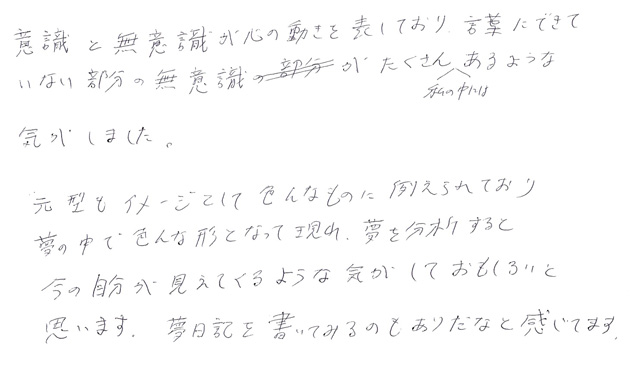 意識と無意識が心の動きを表しており、言葉にできて
いない部分の無意識の部分がたくさんあるような
私の中には
気がしました。
元型もイメージとして色んなものに例えられており
夢の中で色んな形となって現れ、夢を分析すると
今の自分が見えてくるような気がしておもしろいと
思います。夢日記を書いてみるのもありだなと感じてます。